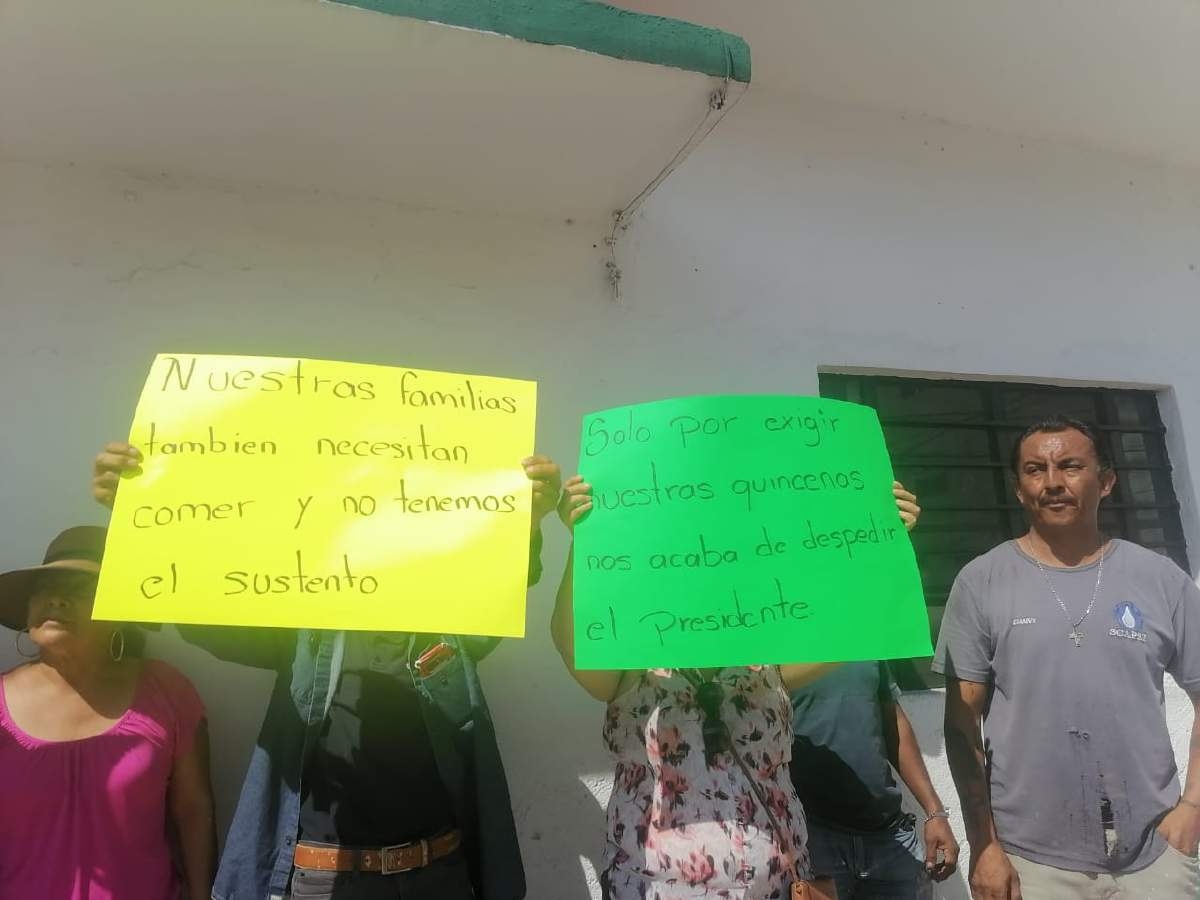 Nuestras familias
tambien necesitan
comer y no tenemos
el sustento
Solo por exigir
nuestras quincenas
nos acaba de despedir
el Presidente.